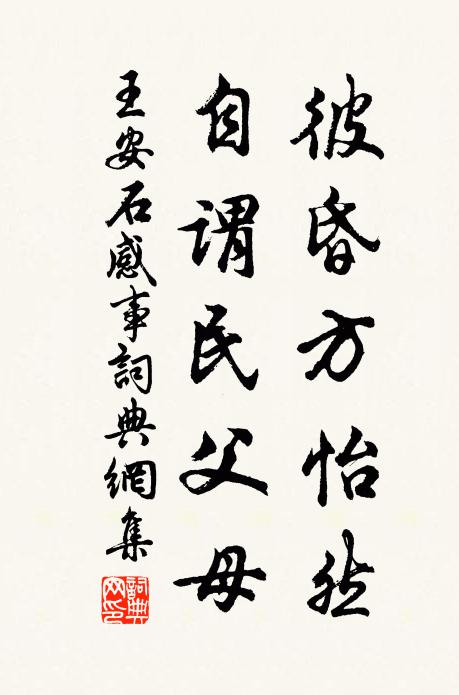 彼昏方怡然
自謂民父母
王安石感事詞典網集
詞典网印